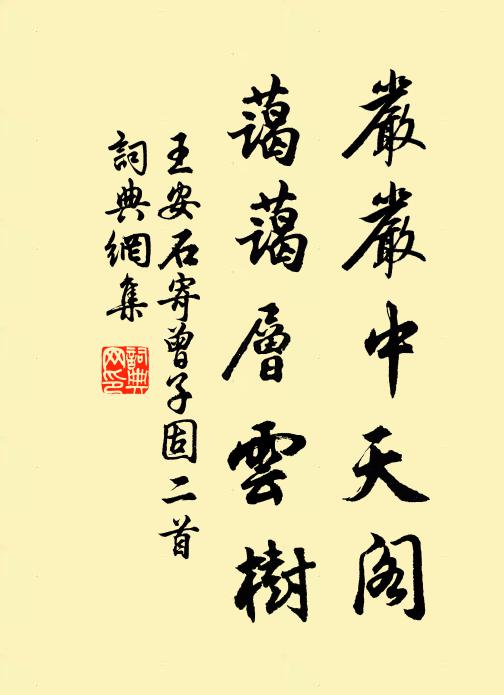 嚴嚴中天閣
藹藹層雲樹
王安石寄曾子固二首
詞典網集
詞典网印